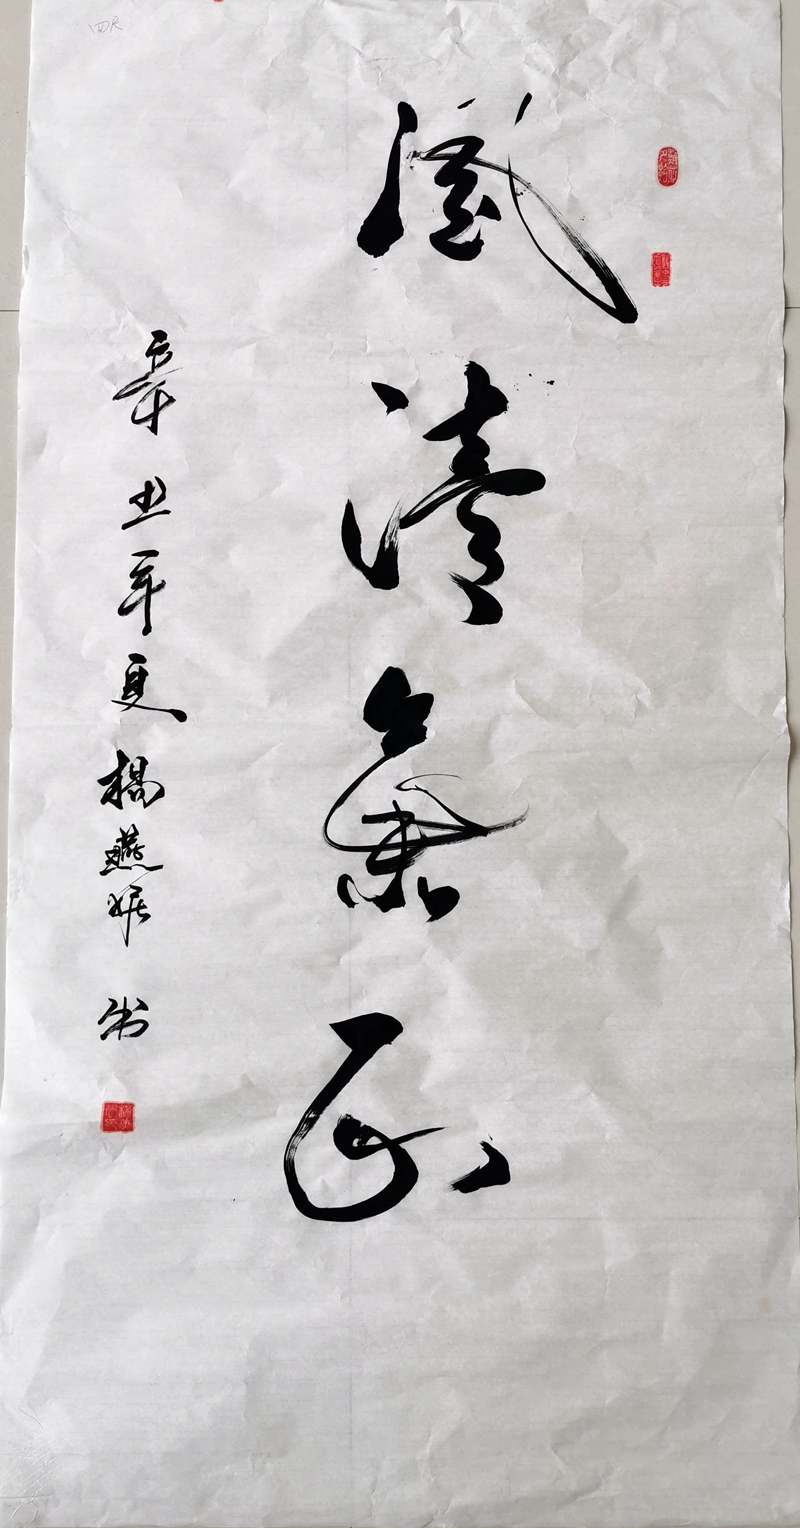 風清氣正
辛丑年夏楊燕书
四尺